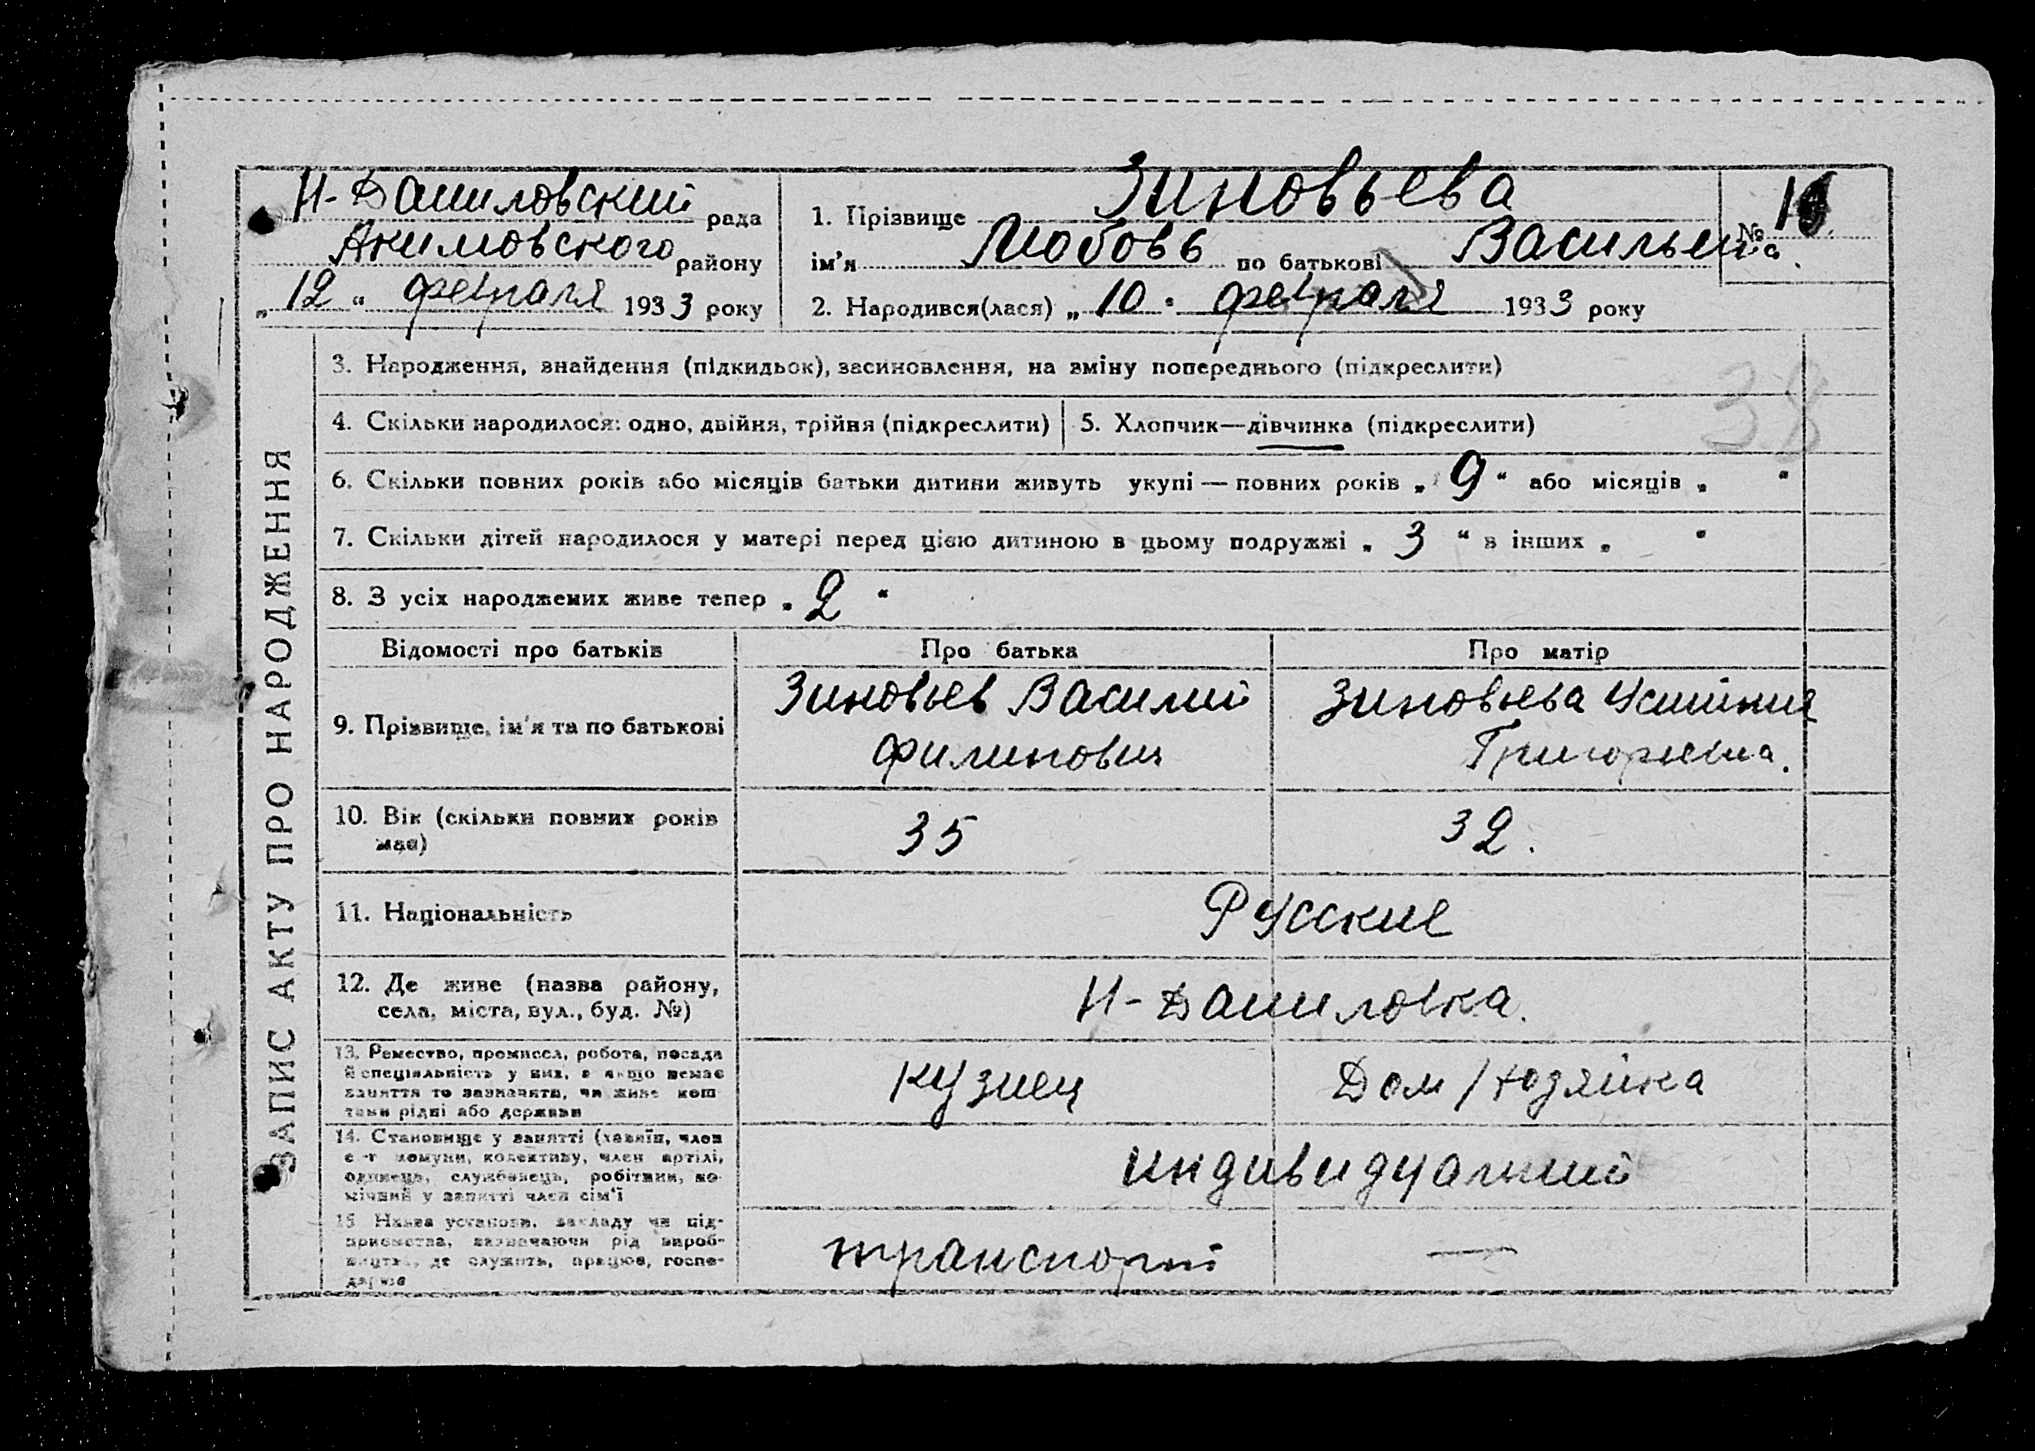 Н-Даниловский рада
Акимовского району
„12“ февраля 1933 року
1. Прізвище Зиновьева
№
ім'я Любовь по батькові Васильевна.
2. Народився(лася) „10“ февраля 1933 року
ЗАПИС АКТУ ПРО НАРОДЖЕННЯ
3. Народження, знайдення (підкидьок), засиновлення, на зміну попереднього (підкреслити)
38
4. Скільки народилося: одно, двійня, трійня (підкреслити)
5. Хлопчик—дівчинка (підкреслити)
6. Скільки повних років або місяців батьки дитини живуть укупі — повних років „9“ або місяців „ “
7. Скільки дітей народилося у матері перед цією дитиною в цьому подружжі „3“ в інших „ “
8. З усіх народжених живе тепер „2“
Відомості про батьків
Про батька
Про матір
9. Прізвище, ім'я та по батькові
Зиновьев Василий
Филипович
Зиновьева
Григорьевна.
10. Вік (скільки повних років
має)
35
32.
11. Національність
Русские
12. Де живе (назва району,
села, міста, вул., буд. №)
Н-Даниловка.
13. Ремество, промисел, робота, посада
й спеціяльність у них, а якщо немає
заняття то зазначити, чи живе кош-
тами рідні або держави
кузнец
Дом/хозяйка
14. Становище у занятті (хазяїн, член
с.-г комуни, колективу, член артілі,
одинець, службовець, робітник, по-
мічний у занятті член сім'ї
индивидуальний
15 Назва установи, закладу чи під-
приємства, зазначаючи рід вироб-
ництва, де служить, працює, госпо-
дарює
транспорт
—